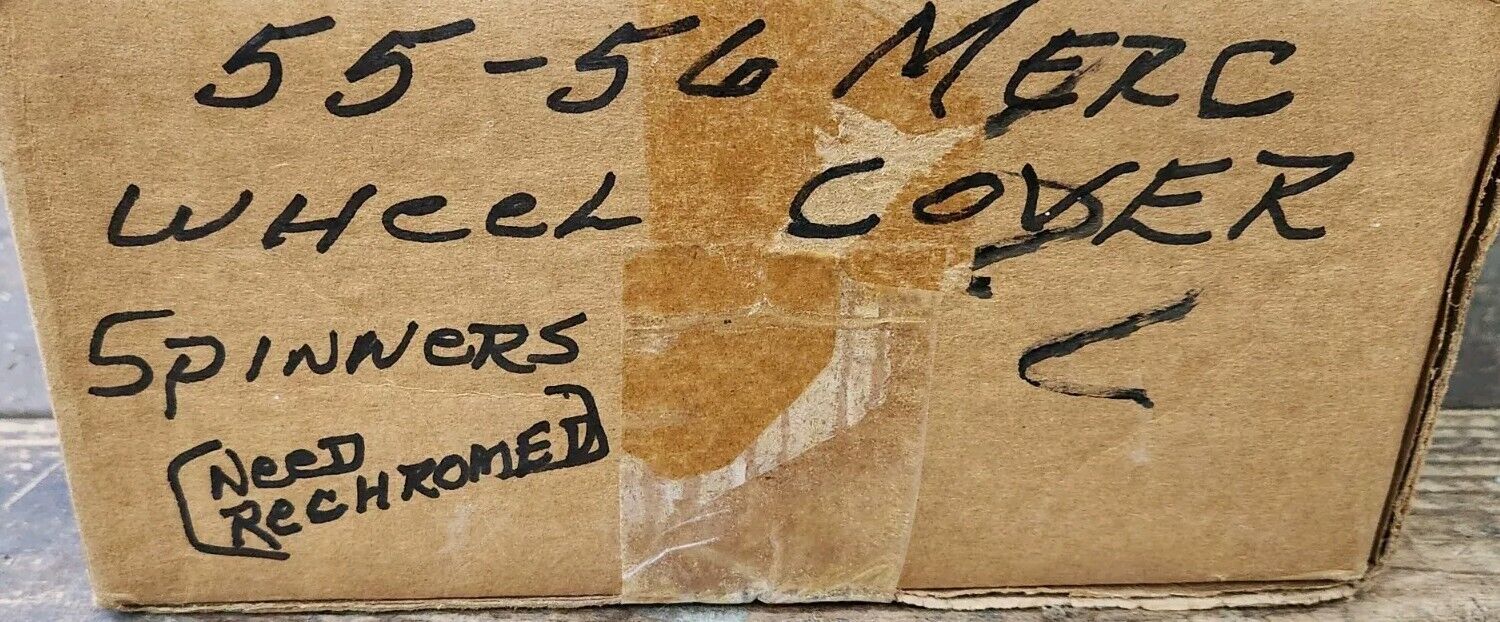 55-56 MERC
WHeeL COVER
SPINNeRS
(NeeD
ReCHROMED)